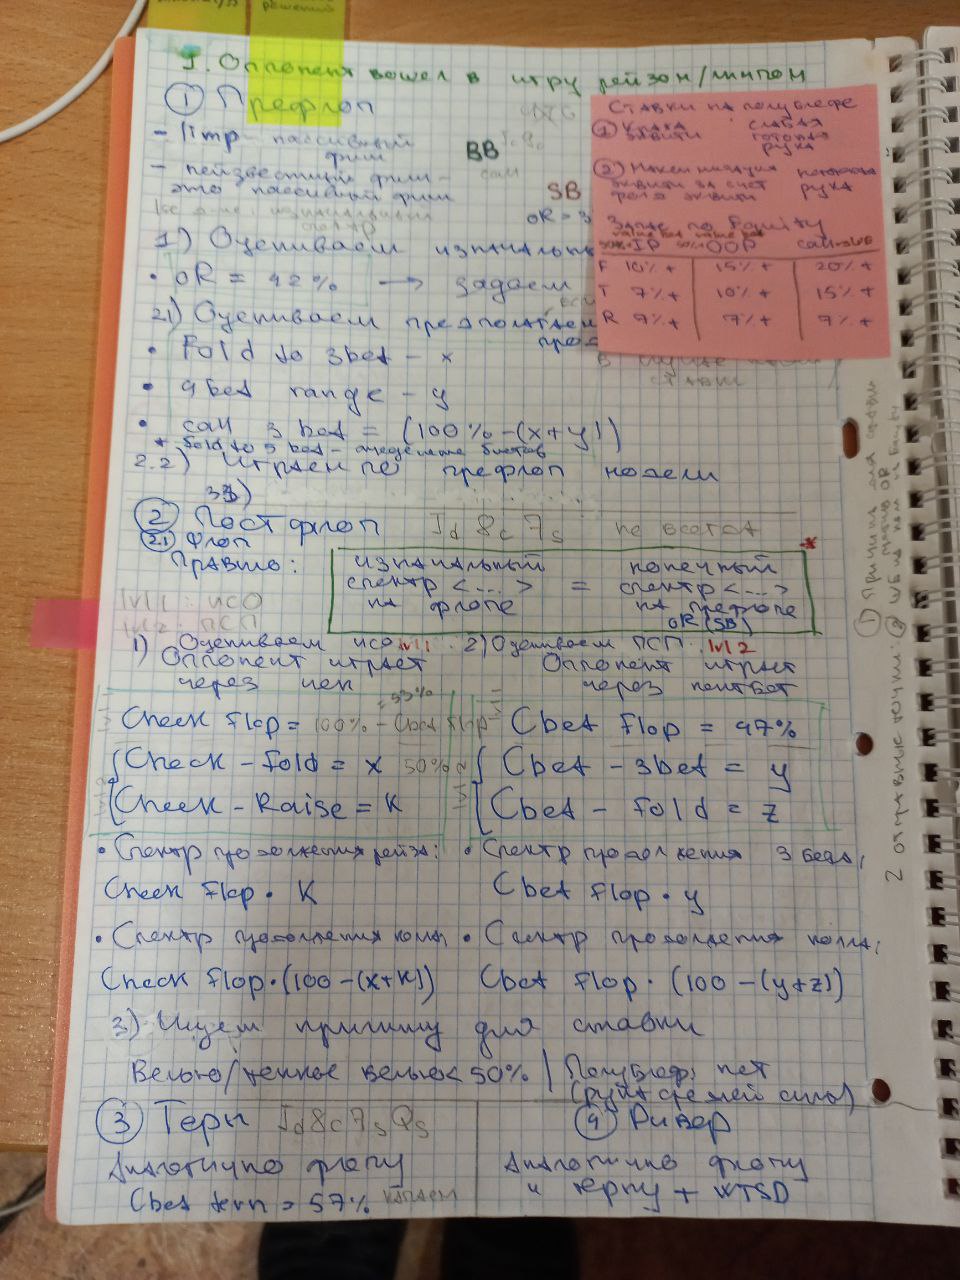 решений
I. Оппонент вошел в игру рейзом/лимпом
① Префлоп
- limp - пассивный
фиш
- неизвестный фиш -
это пассивный фиш
BB
call
SB
OR = 3
1) Оцениваем изначальн
• OR = 42% → задаем
21) Оцениваем предполагаем
• Fold to 3bet - x
• 4bet range - y
• call 3bet = (100% - (x+y))
2.2) Играем по префлоп модели
Ставки на полублефе
① слабая
эквити готовая
рука
② Максимизация
эквити за счет рука
фолд эквити
Запас по Equity
value bet value bet
50%+IP 50%+OOP call-3bet
F 10%+ 15%+ 20%+
T 7%+ 10%+ 15%+
R 7%+ 7%+ 7%+
ставки
② Постфлоп Jd 8c 7s
2.1 Флоп
Правило:
изначальный конечный
спектр <...> = спектр <...>
на флопе на префлопе
OR (SB)
lvl 1: ИСО
lvl 2: ПСП
1) Оцениваем ИСО lvl 1 2) Оцениваем ПСП lvl 2
Оппонент играет Оппонент играет
через чек через контбет
= 53%
Check Flop = 100% - Cbet Flop Cbet Flop = 47%
Check - Fold = x 50% Cbet - 3bet = y
Check - Raise = K Cbet - Fold = z
• Спектр продолжения рейза: • Спектр продолжения 3бета:
Check Flop · K Cbet Flop · y
• Спектр продолжения колла • Спектр продолжения колла:
Check Flop · (100 - (x+K)) Cbet Flop · (100 - (y+z))
3) Ищем причину для ставки
Велью/тонкое велью < 50% | Полублеф: нет
(рука средней силы)
③ Терн Jd 8c 7s Qs ④ Ривер
Аналогично флопу Аналогично флопу
Cbet tern = 57% и терну + WTSD
① Причина для ставки
2 отправные точки: